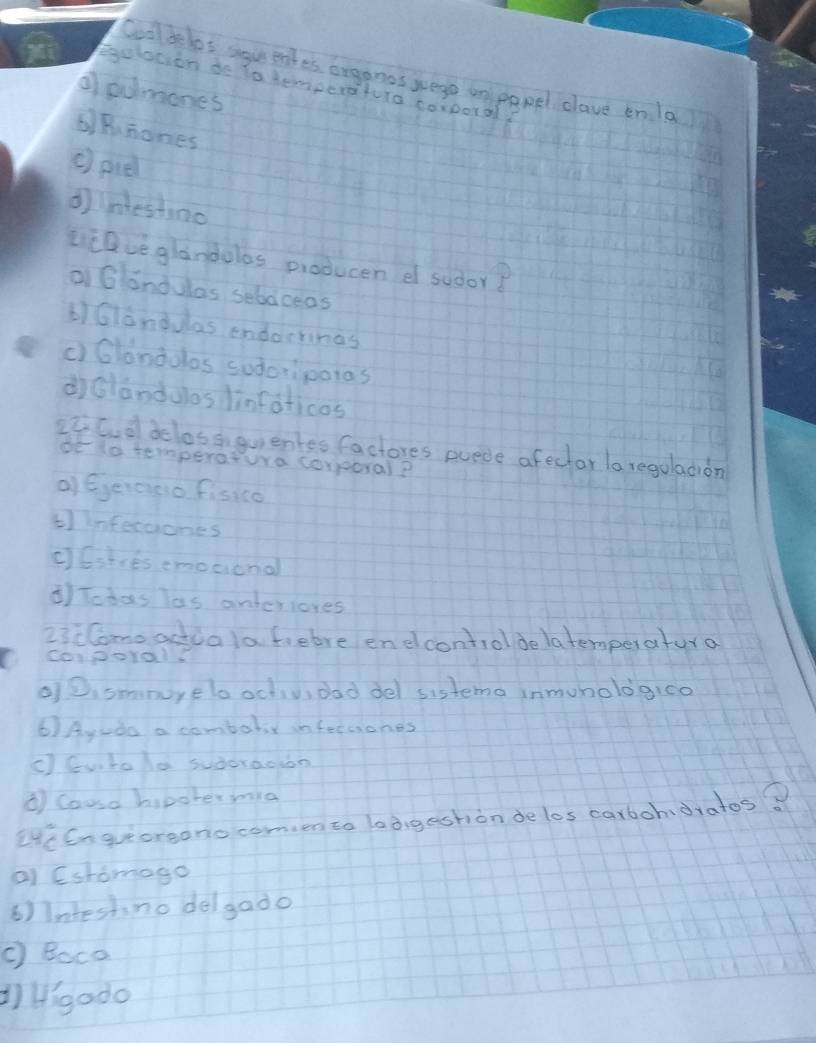 Cual de los siguientes órganos juega un papel clave en la
regulación de la temperatura corporal?
a) pulmones
b) Riñones
c) piel
d) intestino
21¿Que glandulas producen el sudor?
a) Glándulas sebaceas
b) Glandulas endocrinas
c) Glándulas sudoriparas
d) Glándulas linfáticas
22¿Cual de los siguientes factores puede afectar la regulación
de la temperatura corporal?
a) Ejercicio fisico
b) Infecciones
c) Estrés emocional
d) Todas las anteriores
23¿Como actúa la fiebre en el control de la temperatura
corporal?
a) Disminuye la actividad del sistema inmunológico
b) Ayuda a combatir infecciones
c) Evita la sudoración
d) Causa hipotermia
24¿En que organo comienza la digestión de los carbohidratos?
a) Estómago
b) Intestino delgado
c) Boca
d) Hígado